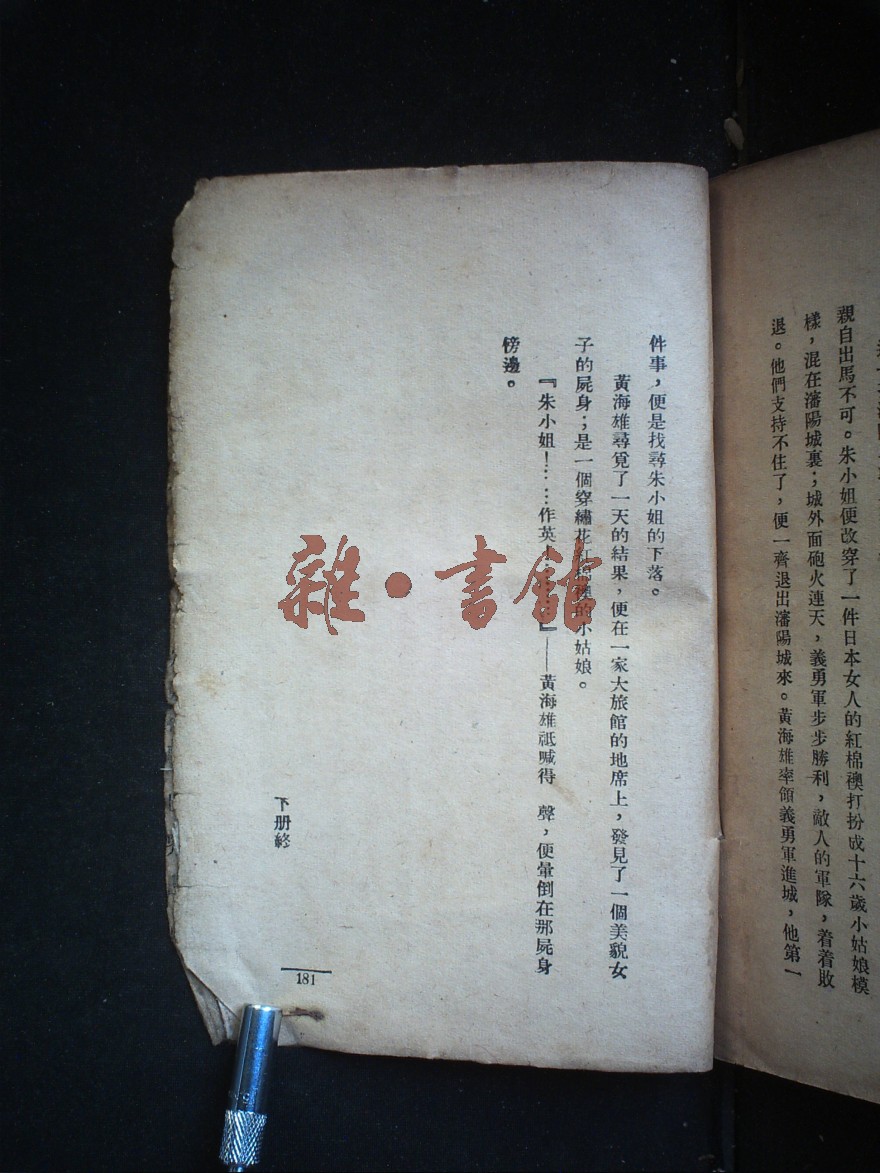 親自出馬不可。朱小姐便改穿了一件日本女人的紅棉襖打扮成十六歲小姑娘模
樣，混在瀋陽城裏；城外面砲火連天，義勇軍步步勝利，敵人的軍隊，着着敗
退。他們支持不住了，便一齊退出瀋陽城來。黃海雄率領義勇軍進城，他第一
件事，便是找尋朱小姐的下落。
黃海雄尋覓了一天的結果，便在一家大旅館的地席上，發見了一個美貌女
子的屍身；是一個穿繡花紅棉襖的小姑娘。
『朱小姐！……作英！……』——黃海雄祗喊得 聲，便暈倒在那屍身
傍邊。
下册終
181
雜·書館